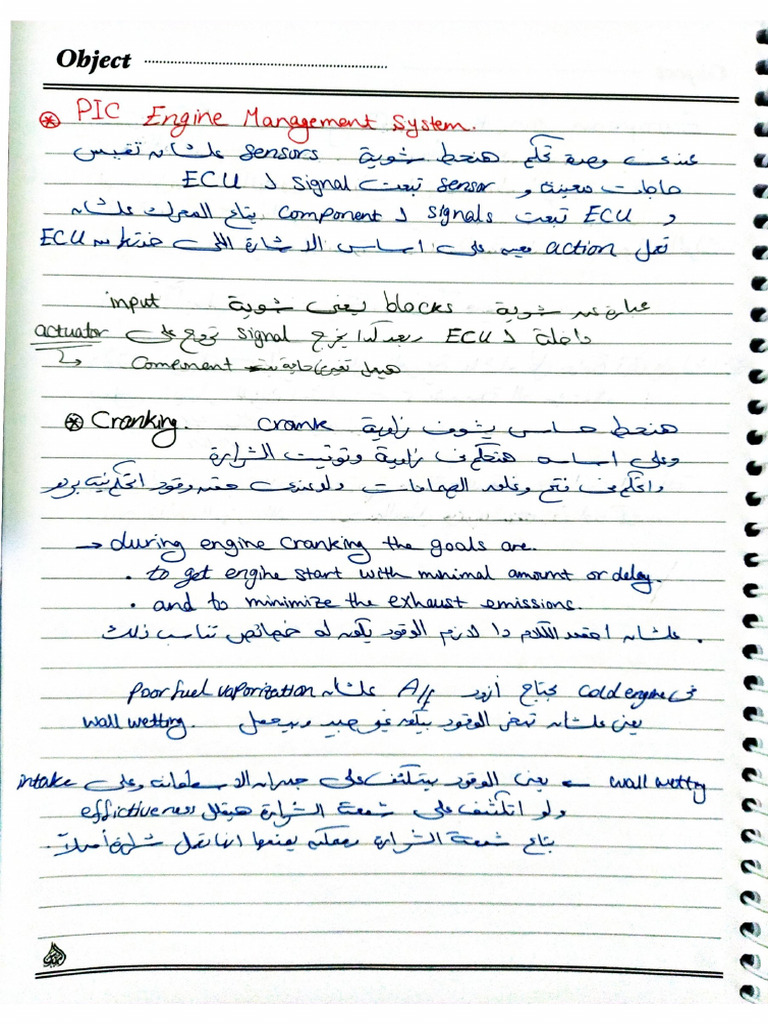 Object
⊛ PIC Engine Management System.
عندى وحدة تحكم هنحط شوية sensors علشان تقيس
حاجات معينة و sensor تبعت signal لـ ECU
و ECU تبعت signals لـ component بتاع المحرك علشان
تعمل action معين على اساس الاشارة اللى خدتها من ECU
عبارة عن شوية blocks يعنى شوية input
داخلة لـ ECU وبعد كدا يخرج signal تروح على actuator
↳ component هيعمل تغيير فى حاجة
⊛ Cranking. هنحط حساس يشوف زاوية crank
وعلى اساسه هنتحكم فى زاوية وتوقيت الشرارة
واتحكم فى فتح وغلق الصمامات ولو عندى حقن وقود اتحكم فيه بردو
→ during engine cranking the goals are.
• to get engine start with minimal amount or delay.
• and to minimize the exhaust emissions.
• علشان احقق الكلام دا لازم الوقود يكون له خصائص تناسب ذلك
فى cold engine نحتاج أزود A/F علشان poor fuel vaporization
يعنى علشان تبخر الوقود بيكون غير جيد وبيحصل wall wetting.
wall wetting ← يعنى الوقود بيتكثف على جدران الاسطوانة وعلى intake
ولو اتكثف على شمعة الشرارة هيقلل effictiveness
بتاع شمعة الشرارة وممكن يمنعها انها تعمل شرارة أصلاً.